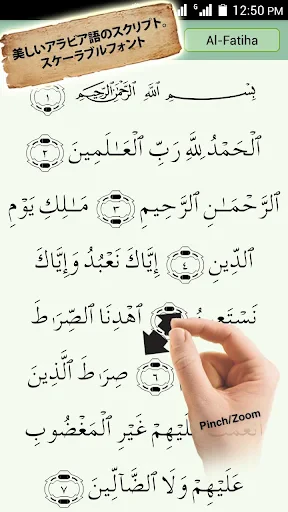 12:50 PM
美しいアラビア語のスクリプト。
スケーラブルフォント
Al-Fatiha
بِسْمِ ٱللَّهِ ٱلرَّحْمَـٰنِ ٱلرَّحِيمِ
١
ٱلْحَمْدُ لِلَّهِ رَبِّ ٱلْعَـٰلَمِينَ ٢
ٱلرَّحْمَـٰنِ ٱلرَّحِيمِ ٣ مَـٰلِكِ يَوْمِ
ٱلدِّينِ ٤ إِيَّاكَ نَعْبُدُ وَإِيَّاكَ
ٱهْدِنَا ٱلصِّرَٰطَ
٦ صِرَٰطَ ٱلَّذِينَ
عَلَيْهِمْ غَيْرِ ٱلْمَغْضُوبِ
عَلَيْهِمْ وَلَا ٱلضَّآلِّينَ ٧
Pinch/Zoom